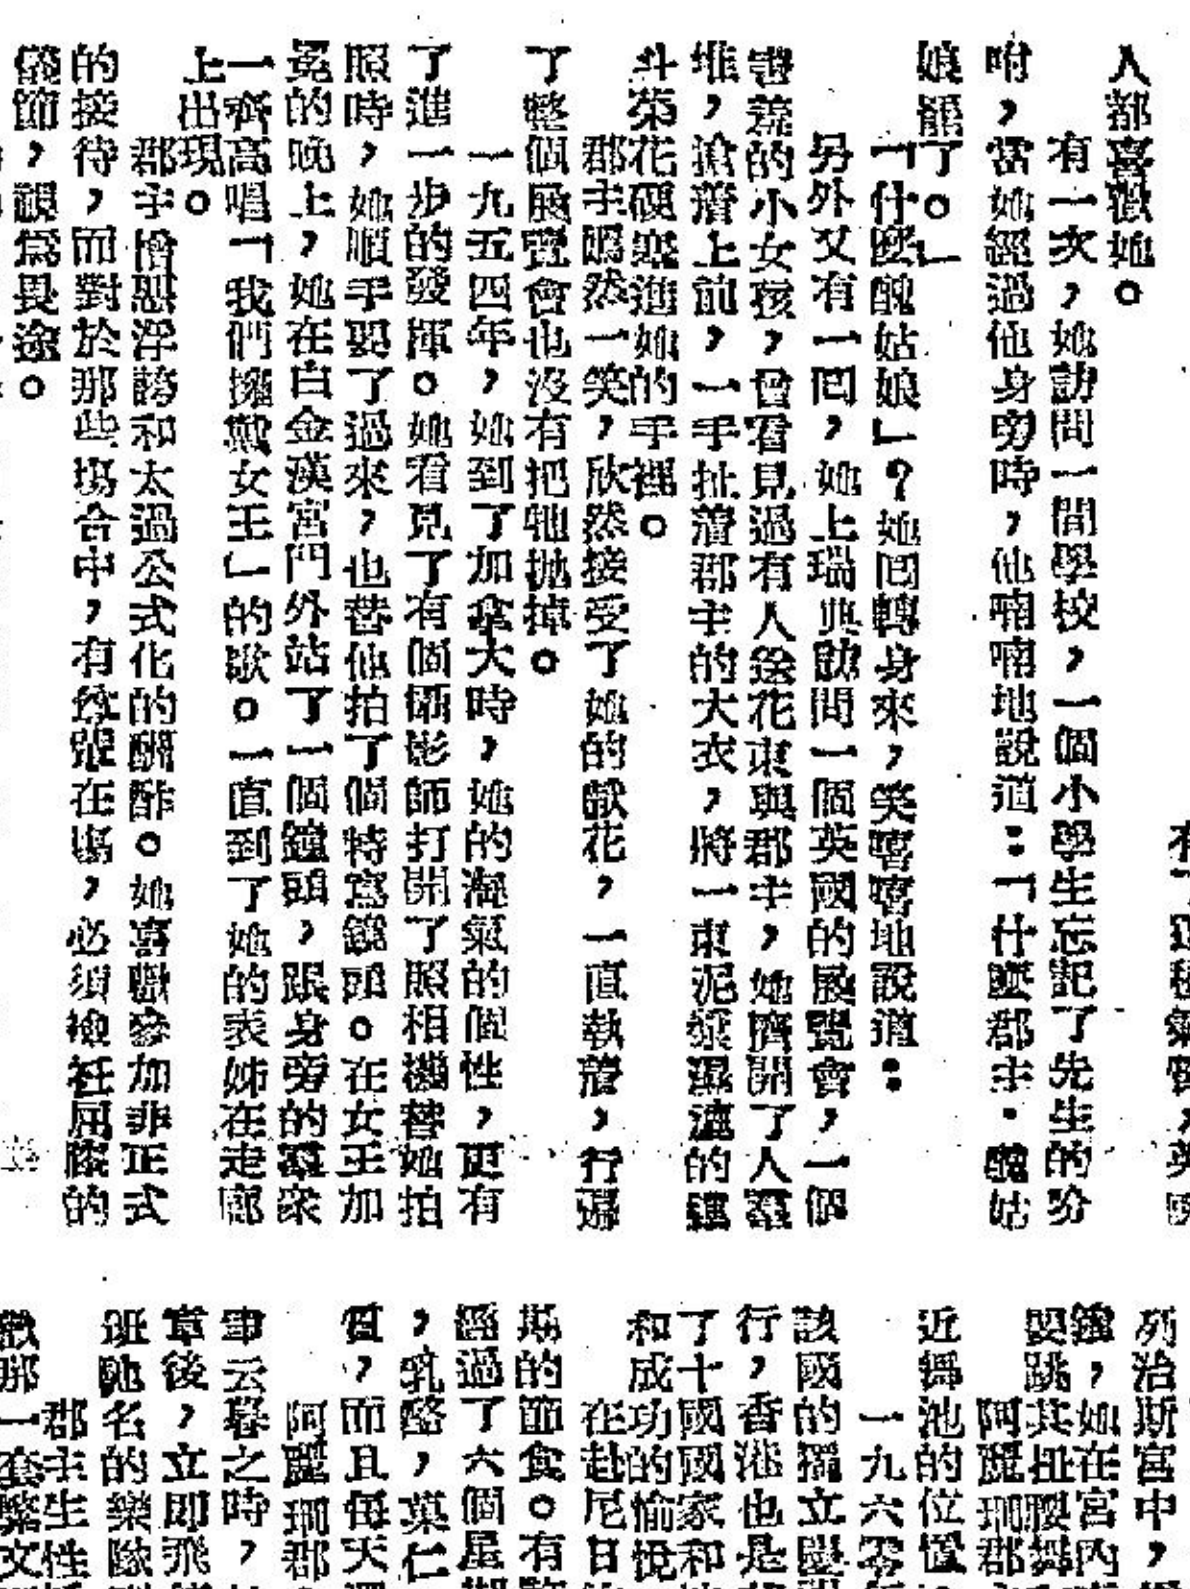 人都喜歡她。
有一次，她訪問一間學校，一個小學生忘記了先生的吩
咐，當她經過他身旁時，他喃喃地說道：「什麼郡主・醜姑
娘罷了。」
「什麼醜姑娘」？她回轉身來，笑嘻嘻地說道：
另外又有一回，她上瑞典訪問一個英國的展覽會，一個
害羞的小女孩，曾看見過有人送花束與郡主，她擠開了人羣
堆，搶着上前，一手扯着郡主的大衣，將一束泥漿濕漉的
斗菜花硬塞進她的手裡。
郡主嫣然一笑，欣然接受了她的獻花，一直執着，行遍
了整個展覽會也沒有把牠拋掉。
一九五四年，她到了加拿大時，她的淘氣的個性，更有
了進一步的發揮。她看見了有個攝影師打開了照相機替她拍
照時，她順手要了過來，也替他拍了個特寫鏡頭。在女王加
冕的晚上，她在白金漢宮門外站了一個鐘頭，跟身旁的羣衆
一齊高唱「我們擁戴女王」的歌。一直到了她的表姊在走廊
上出現。
郡主憎惡浮誇和太過公式化的酬酢。她喜歡參加非正式
的接待，而對於那些塲合中，有紋在塲，必須檢衽屈膝的
儀節，視爲畏途。
列治斯宮中，
鐘，她在宮內
要跳其扭腰舞
阿麗珊郡
近舞池的位置
一九六零
該國的獨立慶
行，香港也是
了十國國家和
和成功的愉悅
在赴尼日
塲的節食。有
經過了六個星
，乳酪，菓仁
質，而且每天
阿麗珊郡
聿云暮之時，
章後，立即飛
班馳名的樂隊
郡主生性
歡那一套繁文